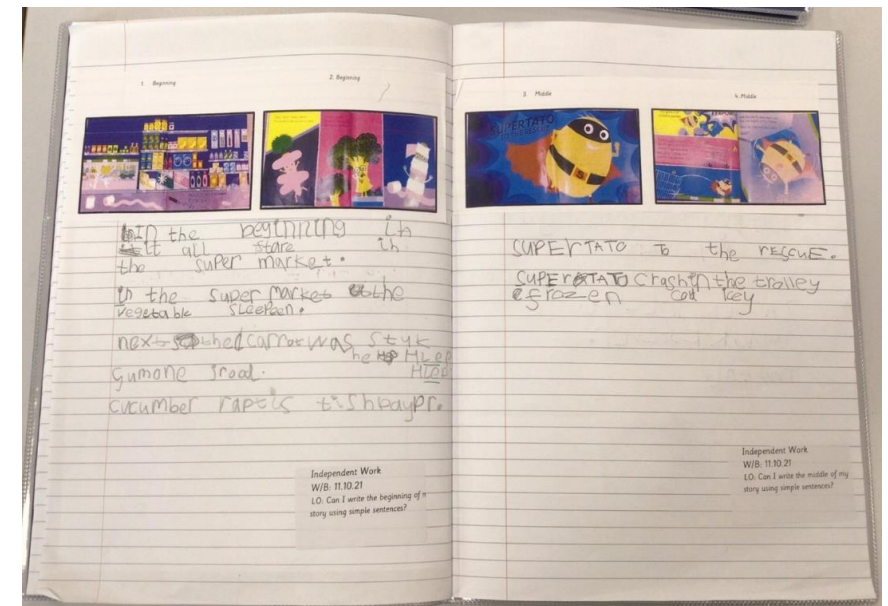 1. Beginning
2. Beginning
In the beginning in
it all stare in
the super market.
in the super market the
vegetable sleepen.
next the carrot was styk
he HLep
gumone srood. HLep
cucumber raptis tishpaypr.
Independent Work
W/B: 11.10.21
LO: Can I write the beginning of m
story using simple sentences?
3. Middle
4. Middle
SUPERTATO
SUPERTATO To the rescue.
SUPERTATO crash in the trolley
frozen key
Independent Work
W/B: 11.10.21
LO: Can I write the middle of my
story using simple sentences?